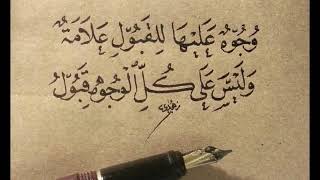 وُجُوهٌ عَلَيْهَا لِلْقَبُولِ عَلَامَةٌ
وَلَيْسَ عَلَى كُلِّ الْوُجُوهِ قَبُولُ